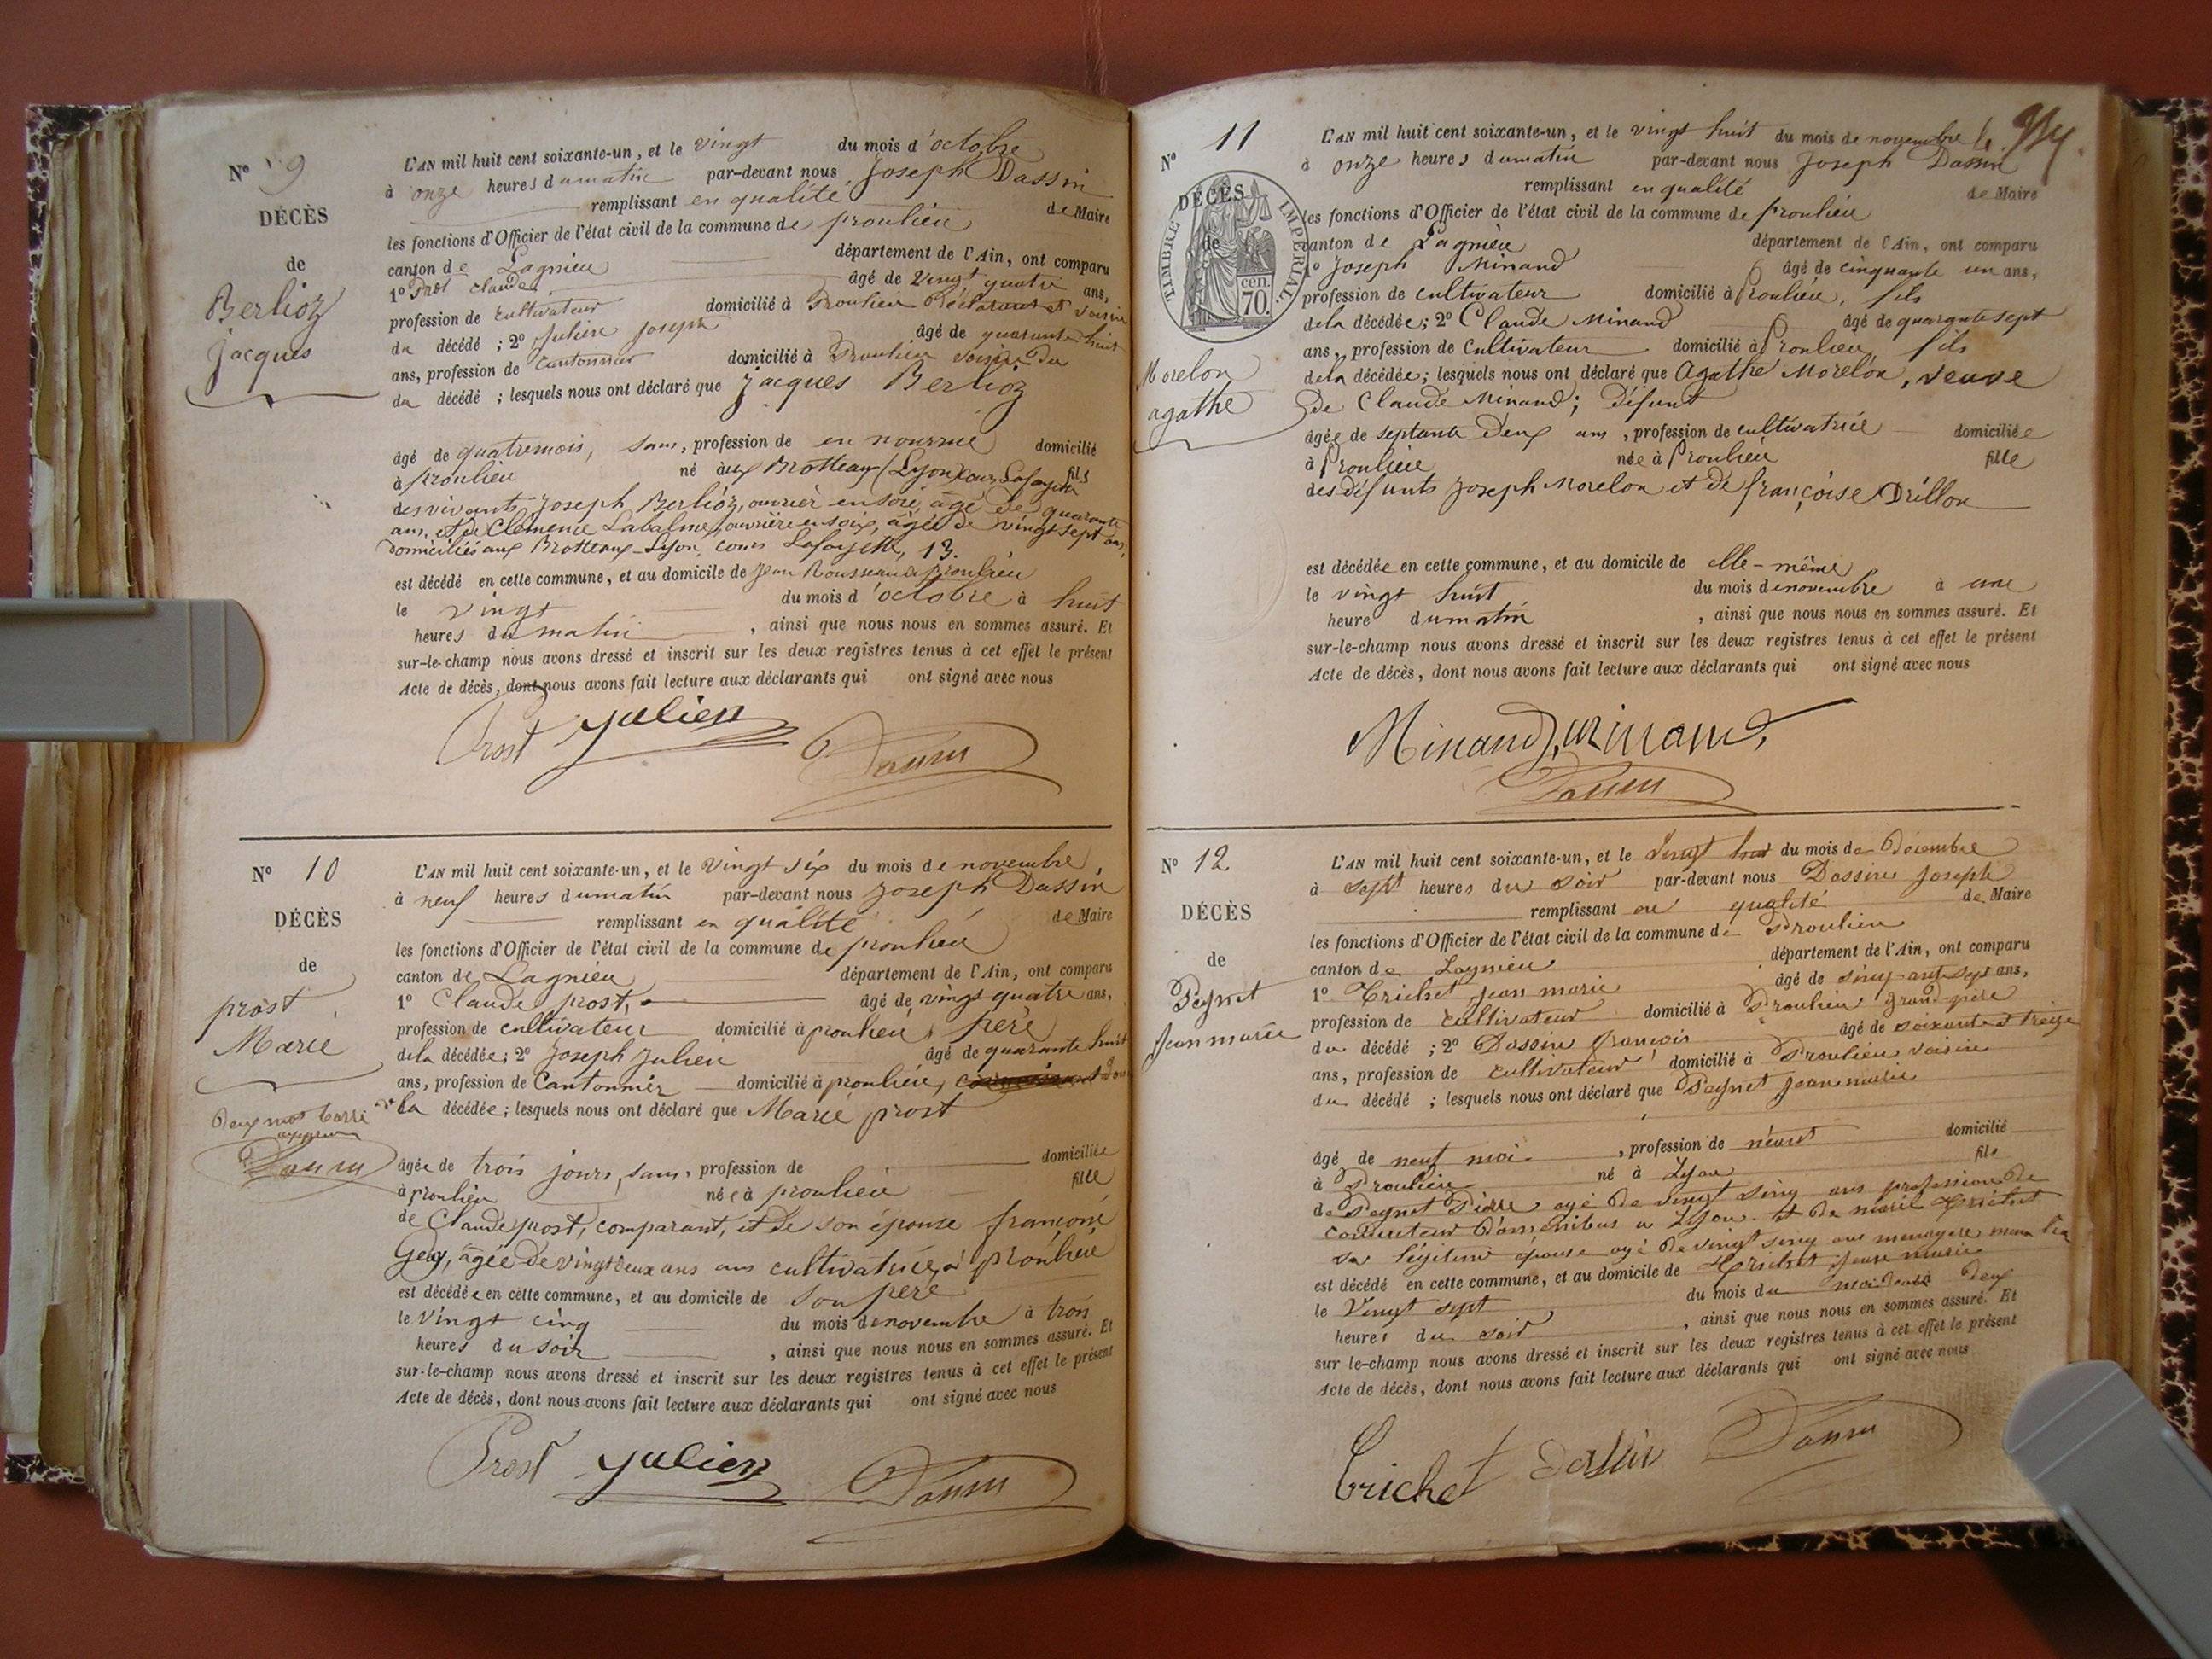 N° 9
DÉCÈS
de
Berlioz
Jacques
L'AN mil huit cent soixante-un, et le vingt du mois d'octobre
à onze heures du matin par-devant nous Joseph Dassin
remplissant en qualité de Maire
les fonctions d'Officier de l'état civil de la commune de proulieu
canton de Lagnieu département de l'Ain, ont comparu
1° Prost Claude âgé de vingt quatre ans,
profession de cultivateur domicilié à Proulieu Déclarant et voisin
du décédé ; 2° Julien Joseph âgé de quarante huit
ans, profession de Cantonnier domicilié à Proulieu voisin du
du décédé ; lesquels nous ont déclaré que Jacques Berlioz
âgé de quatre mois, sans, profession de en nourrice domicilié
à proulieu né aux Brotteaux (Lyon) cours Lafayette fils
des vivants Joseph Berlioz, ouvrier en soie, âgé de quarante
ans, et de Clémence Labalme, ouvrière en soie, âgée de vingt sept ans,
domiciliés aux Brotteaux-Lyon, cours Lafayette, 13.
est décédé en cette commune, et au domicile de Jean Rousseau à proulieu
le vingt du mois d'octobre à huit
heures du matin , ainsi que nous nous en sommes assuré. Et
sur-le-champ nous avons dressé et inscrit sur les deux registres tenus à cet effet le présent
Acte de décès, dont nous avons fait lecture aux déclarants qui ont signé avec nous
Prost Julien Dassin
N° 10
DÉCÈS
de
prost
Marie
Deux mots barré
Dassin
L'AN mil huit cent soixante-un, et le vingt six du mois de novembre,
à neuf heures du matin par-devant nous Joseph Dassin
remplissant en qualité de Maire
les fonctions d'Officier de l'état civil de la commune de proulieu
canton de Lagnieu département de l'Ain, ont comparu
1° Claude prost, âgé de vingt quatre ans,
profession de cultivateur domicilié à proulieu, père
de la décédée; 2° Joseph Julien âgé de quarante huit
ans, profession de Cantonnier domicilié à proulieu,
la décédée; lesquels nous ont déclaré que Marie prost
âgée de trois jours, sans, profession de domiciliée
à proulieu née à proulieu fille
de Claude prost, comparant, et de son épouse françoise
Gedy, âgée de vingt deux ans cultivatrice, à proulieu
est décédée en cette commune, et au domicile de son père
le vingt cinq du mois de novembre à trois
heures du soir , ainsi que nous nous en sommes assuré. Et
sur-le-champ nous avons dressé et inscrit sur les deux registres tenus à cet effet le présent
Acte de décès, dont nous avons fait lecture aux déclarants qui ont signé avec nous
Prost Julien Dassin
N° 11
DÉCÈS
de
TIMBRE IMPÉRIAL
70 cen.
Morelon
agathe
L'AN mil huit cent soixante-un, et le vingt huit du mois de novembre
à onze heures du matin par-devant nous Joseph Dassin
remplissant en qualité de Maire
les fonctions d'Officier de l'état civil de la commune de proulieu
canton de Lagnieu département de l'Ain, ont comparu
1° Joseph Minand âgé de cinquante un ans,
profession de cultivateur domicilié à Proulieu, fils
de la décédée; 2° Claude Minand âgé de quarante sept
ans, profession de cultivateur domicilié à Proulieu, fils
de la décédée; lesquels nous ont déclaré que Agathe Morelon, veuve
de Claude Minand; Défunt
âgée de septante deux ans, profession de cultivatrice domiciliée
à Proulieu née à Proulieu fille
des défunts Joseph Morelon et de françoise Drillon
est décédée en cette commune, et au domicile de elle-même
le vingt huit du mois de novembre à une
heure du matin , ainsi que nous nous en sommes assuré. Et
sur-le-champ nous avons dressé et inscrit sur les deux registres tenus à cet effet le présent
Acte de décès, dont nous avons fait lecture aux déclarants qui ont signé avec nous
Minand, minand,
Dassin
N° 12
DÉCÈS
de
Peynet
Jean marie
L'AN mil huit cent soixante-un, et le vingt huit du mois de Décembre
à sept heures du soir par-devant nous Dassin Joseph
remplissant en qualité de Maire
les fonctions d'Officier de l'état civil de la commune de Proulieu
canton de Lagnieu département de l'Ain, ont comparu
1° Trichet Jean marie âgé de sinquante sept ans,
profession de cultivateur domicilié à Proulieu grand père
du décédé ; 2° Dassin françois âgé de soixante et treize
ans, profession de cultivateur domicilié à Proulieu voisin
du décédé ; lesquels nous ont déclaré que Peynet Jean marie
âgé de neuf moi , profession de néant domicilié
à Proulieu né à Lyon fils
de Peynet Pierre agé de vingt sinq ans profession de
conducteur d'omnibus a Lyon et de marie Trichet
sa légitime épouse agé de vingt sinq ans menagere
est décédé en cette commune, et au domicile de Trichet Jean marie
le vingt sept du mois du à deux
heures du soir , ainsi que nous nous en sommes assuré. Et
sur le-champ nous avons dressé et inscrit sur les deux registres tenus à cet effet le présent
Acte de décès, dont nous avons fait lecture aux déclarants qui ont signé avec nous
Trichet Dassin Dassin